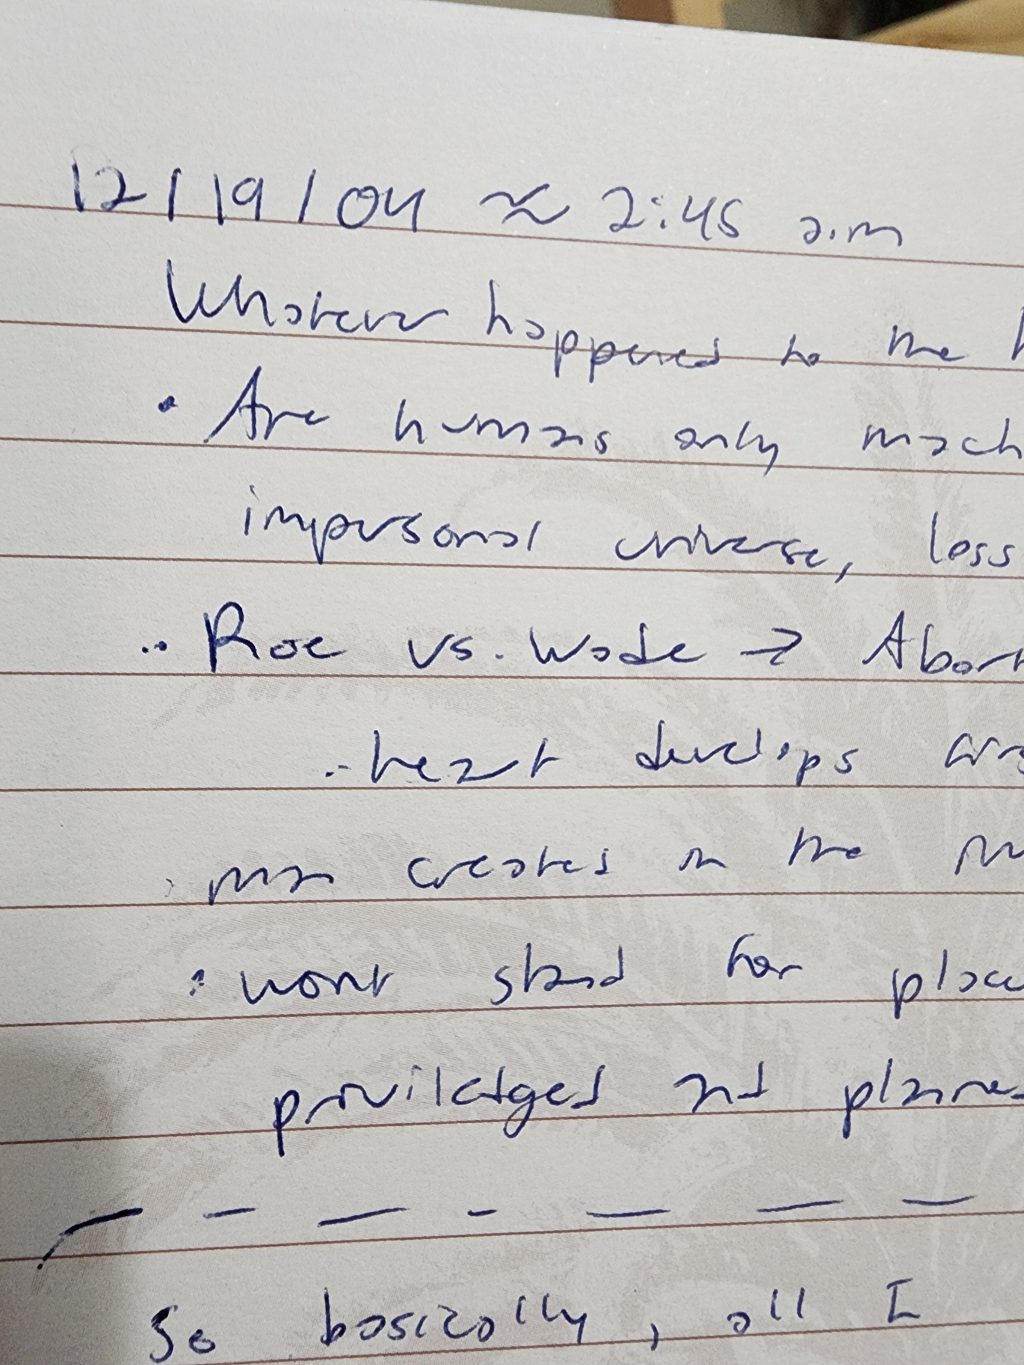 12/19/04 ≈ 2:45 a.m
Whatever happened to the h
• Are humans only mach
impersonal universe, loss
.. Roe vs. Wade → Abort
..heart develops
man creates in the
: wont stand for place
priviledged and planne
— — — — — — —
So basically, all I